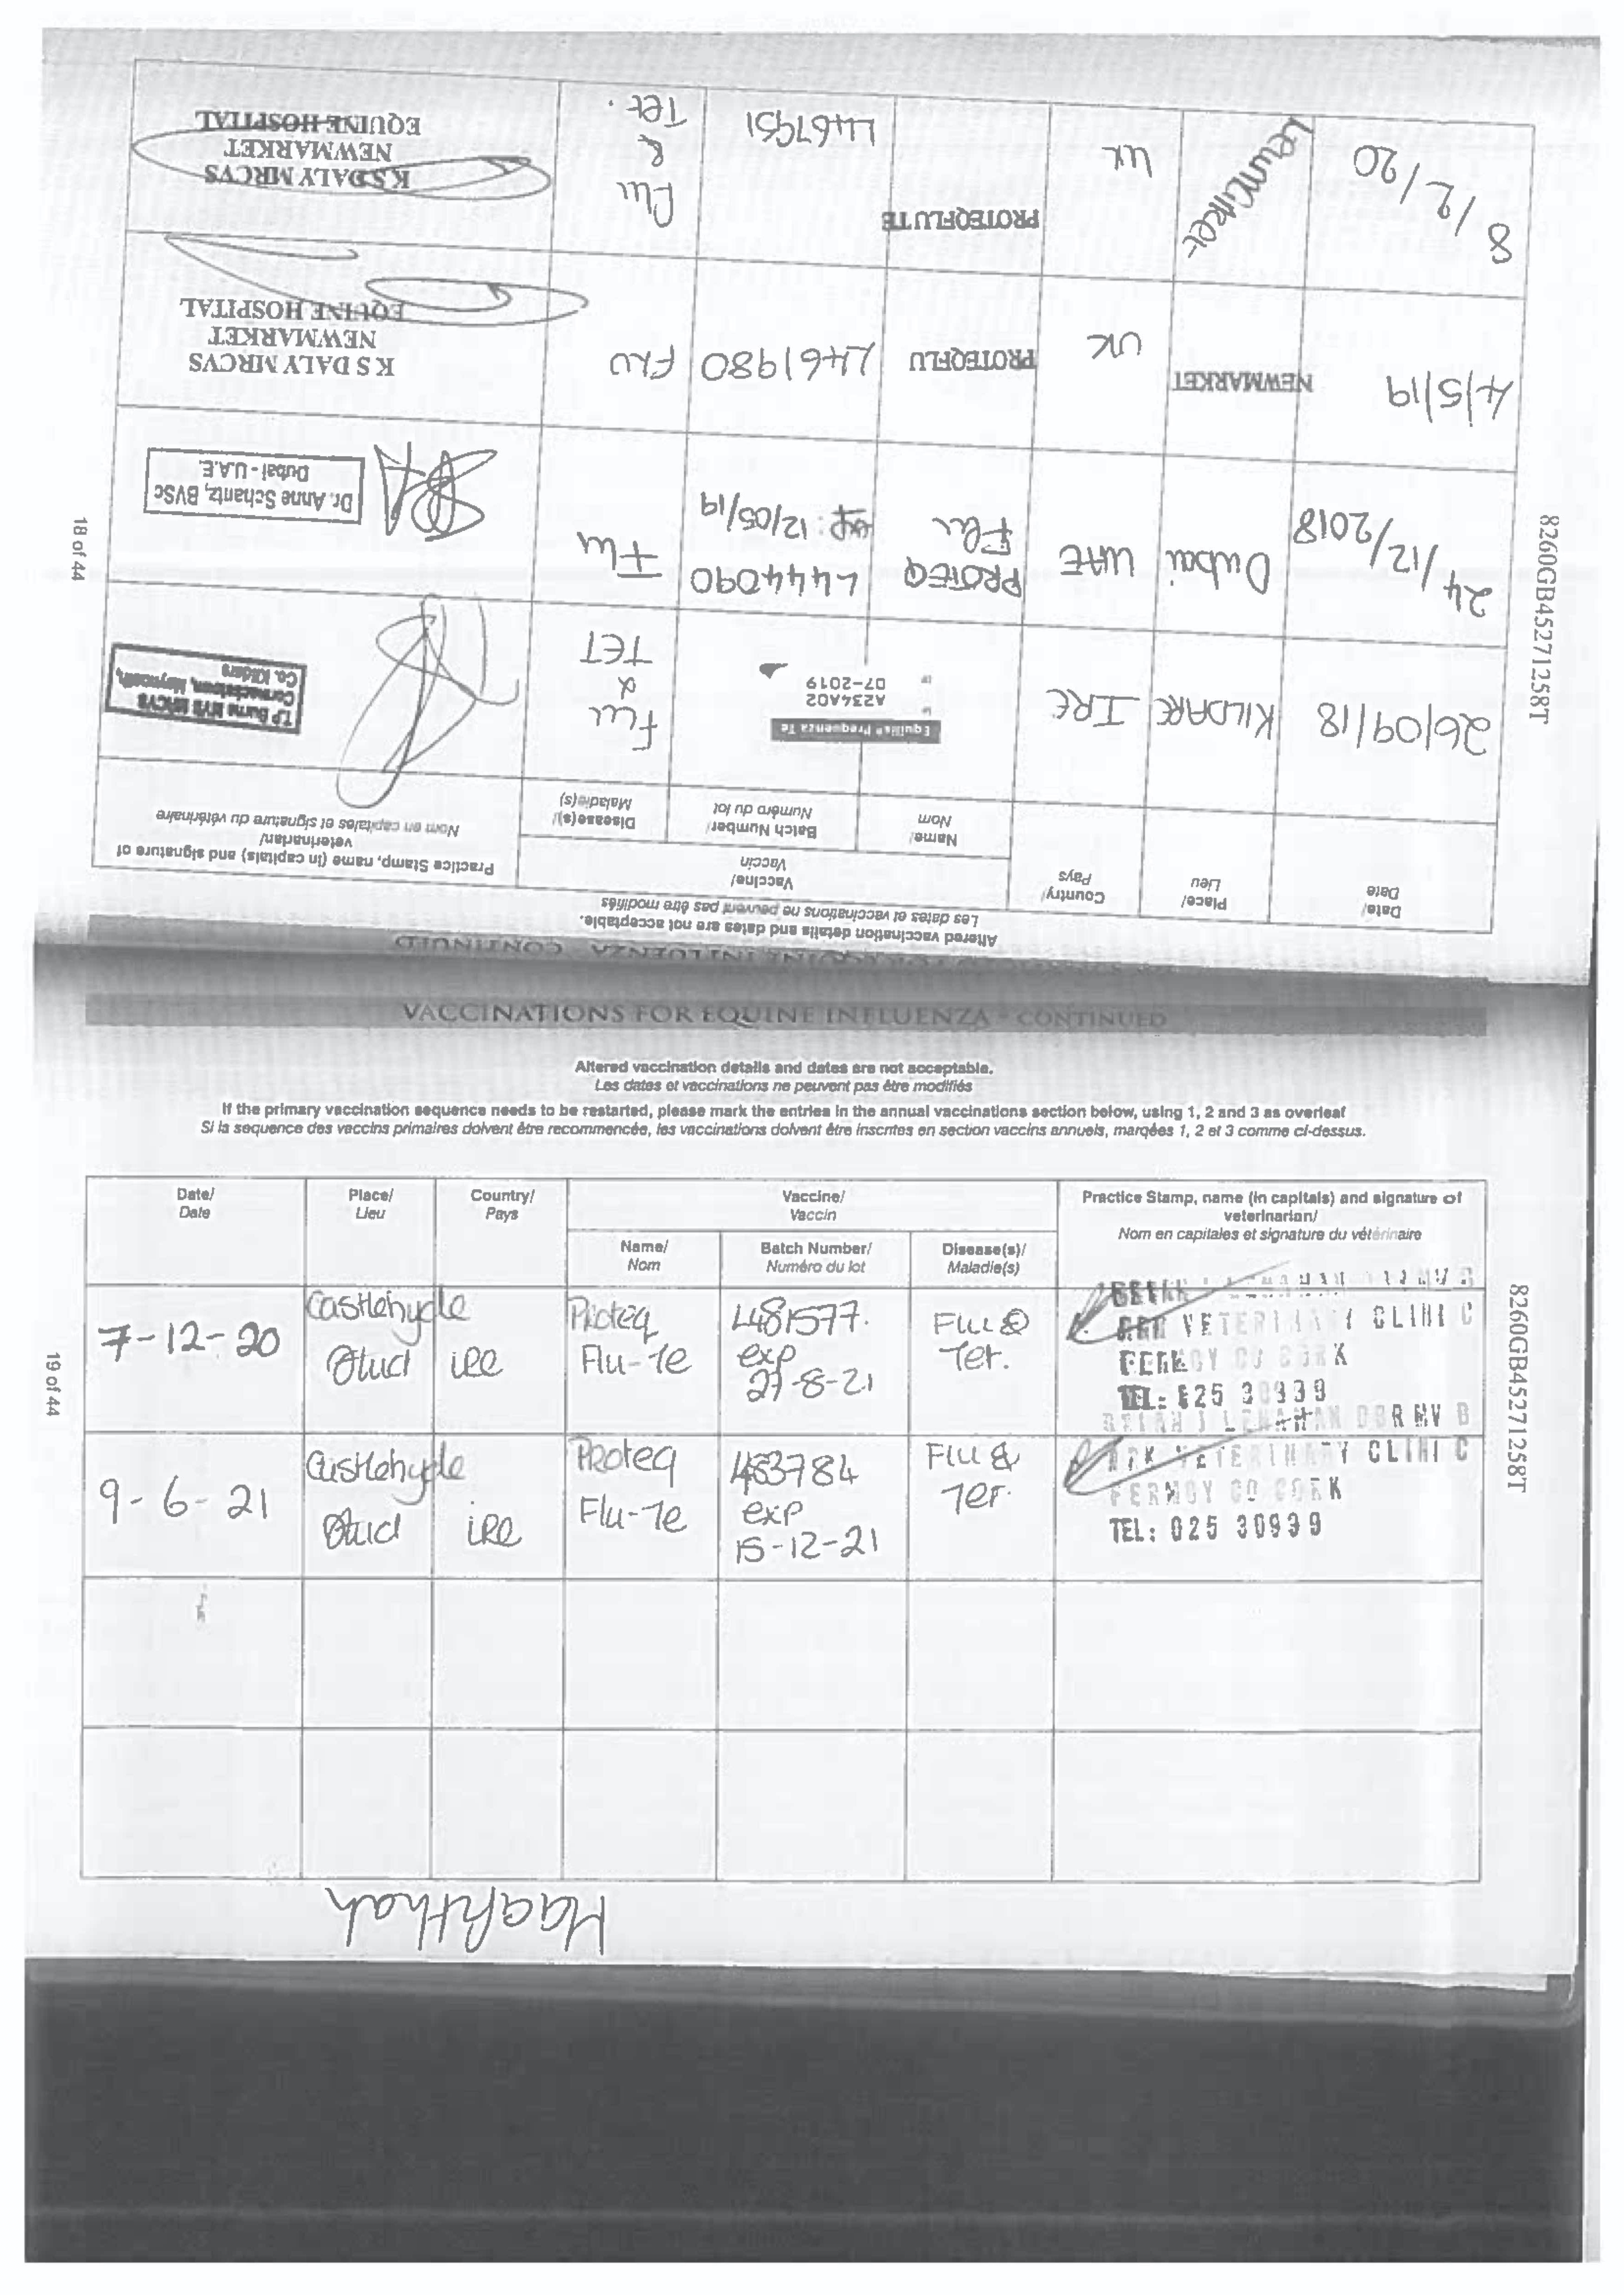 VACCINATIONS FOR EQUINE INFLUENZA - CONTINUED
Altered vaccination details and dates are not acceptable.
Les dates et vaccinations ne peuvent pas être modifiés
Date/ Date
Place/ Lieu
Country/ Pays
Vaccine/ Vaccin
Name/ Nom
Batch Number/ Numéro du lot
Disease(s)/ Maladie(s)
Practice Stamp, name (in capitals) and signature of
veterinarian/
Nom en capitales et signature du vétérinaire
26/09/18
KILDARE
IRE
Equilis® Prequenza Te
A234A02
07-2019
Flu
&
TET
Burns MVB MRCVS
Co. Kildare
24/12/2018
Dubai
UAE
PROTEQ
Flu
L444090
exp: 12/05/19
Flu
Dr. Anne Schantz, BVSc
Dubai - U.A.E.
4/5/19
NEWMARKET
UK
PROTEQFLU
L461980
FLU
K S DALY MRCVS
NEWMARKET
EQUINE HOSPITAL
8/2/20
UK
PROTEQFLUTE
L467951
Flu
&
Tet.
K S DALY MRCVS
NEWMARKET
EQUINE HOSPITAL
18 of 44
8260GB45271258T
VACCINATIONS FOR EQUINE INFLUENZA - CONTINUED
Altered vaccination details and dates are not acceptable.
Les dates et vaccinations ne peuvent pas être modifiés
If the primary vaccination sequence needs to be restarted, please mark the entries in the annual vaccinations section below, using 1, 2 and 3 as overleaf
Si la sequence des vaccins primaires doivent être recommencée, les vaccinations doivent être inscrites en section vaccins annuels, marqées 1, 2 et 3 comme ci-dessus.
Date/ Date
Place/ Lieu
Country/ Pays
Vaccine/ Vaccin
Name/ Nom
Batch Number/ Numéro du lot
Disease(s)/ Maladie(s)
Practice Stamp, name (in capitals) and signature of
veterinarian/
Nom en capitales et signature du vétérinaire
7-12-20
Castlehyde
Stud
ire
Proteq
Flu-Te
L481577.
exp
27-8-21
Flu &
Tet.
VETERINARY CLINIC
FERMOY CO CORK
TEL: 025 30939
9-6-21
Castlehyde
Stud
ire
Proteq
Flu-Te
L483784
exp
15-12-21
Flu &
Tet.
VETERINARY CLINIC
FERMOY CO CORK
TEL: 025 30939
19 of 44
8260GB45271258T